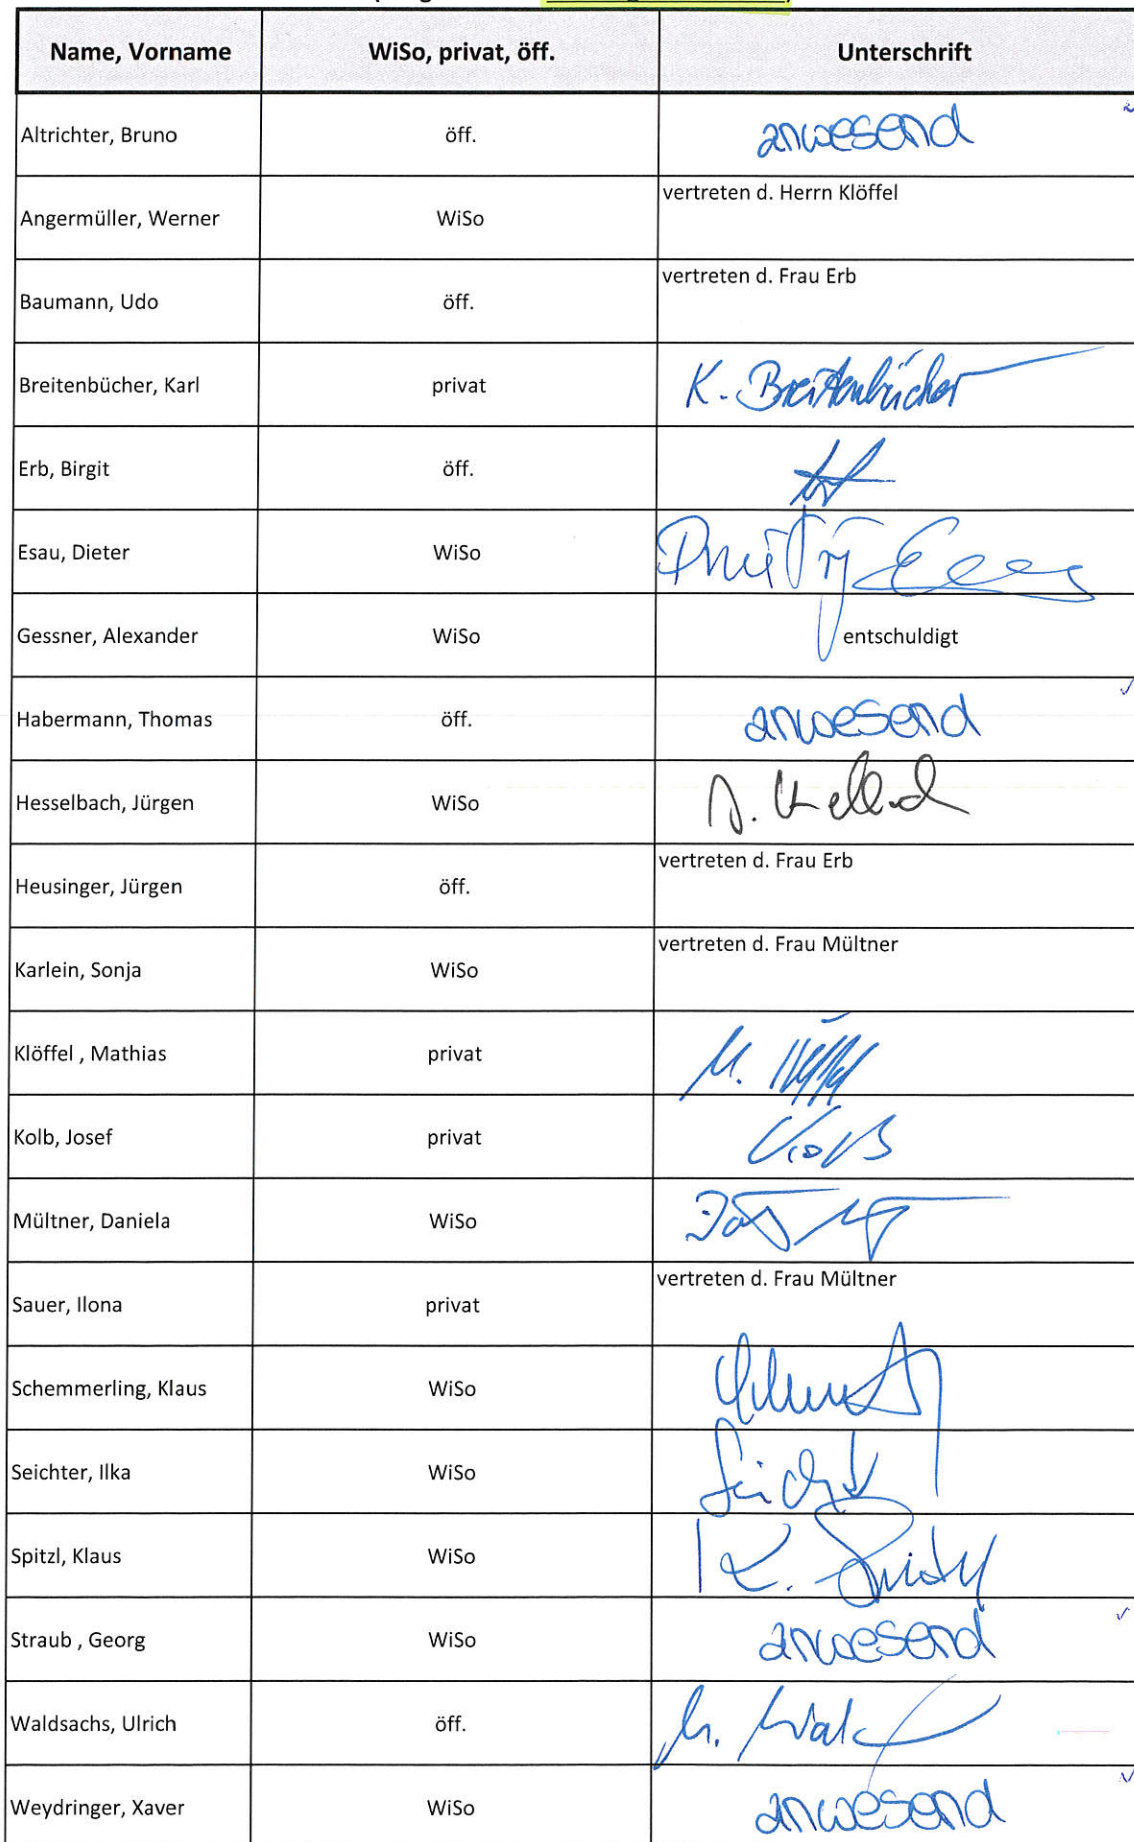 Name, Vorname WiSo, privat, öff. Unterschrift
Altrichter, Bruno öff. anwesend
Angermüller, Werner WiSo vertreten d. Herrn Klöffel
Baumann, Udo öff. vertreten d. Frau Erb
Breitenbücher, Karl privat K. Breitenbücher
Erb, Birgit öff.
Esau, Dieter WiSo
Gessner, Alexander WiSo entschuldigt
Habermann, Thomas öff. anwesend
Hesselbach, Jürgen WiSo
Heusinger, Jürgen öff. vertreten d. Frau Erb
Karlein, Sonja WiSo vertreten d. Frau Mültner
Klöffel , Mathias privat M.
Kolb, Josef privat Kolb
Mültner, Daniela WiSo
Sauer, Ilona privat vertreten d. Frau Mültner
Schemmerling, Klaus WiSo
Seichter, Ilka WiSo
Spitzl, Klaus WiSo K.
Straub , Georg WiSo anwesend
Waldsachs, Ulrich öff.
Weydringer, Xaver WiSo anwesend